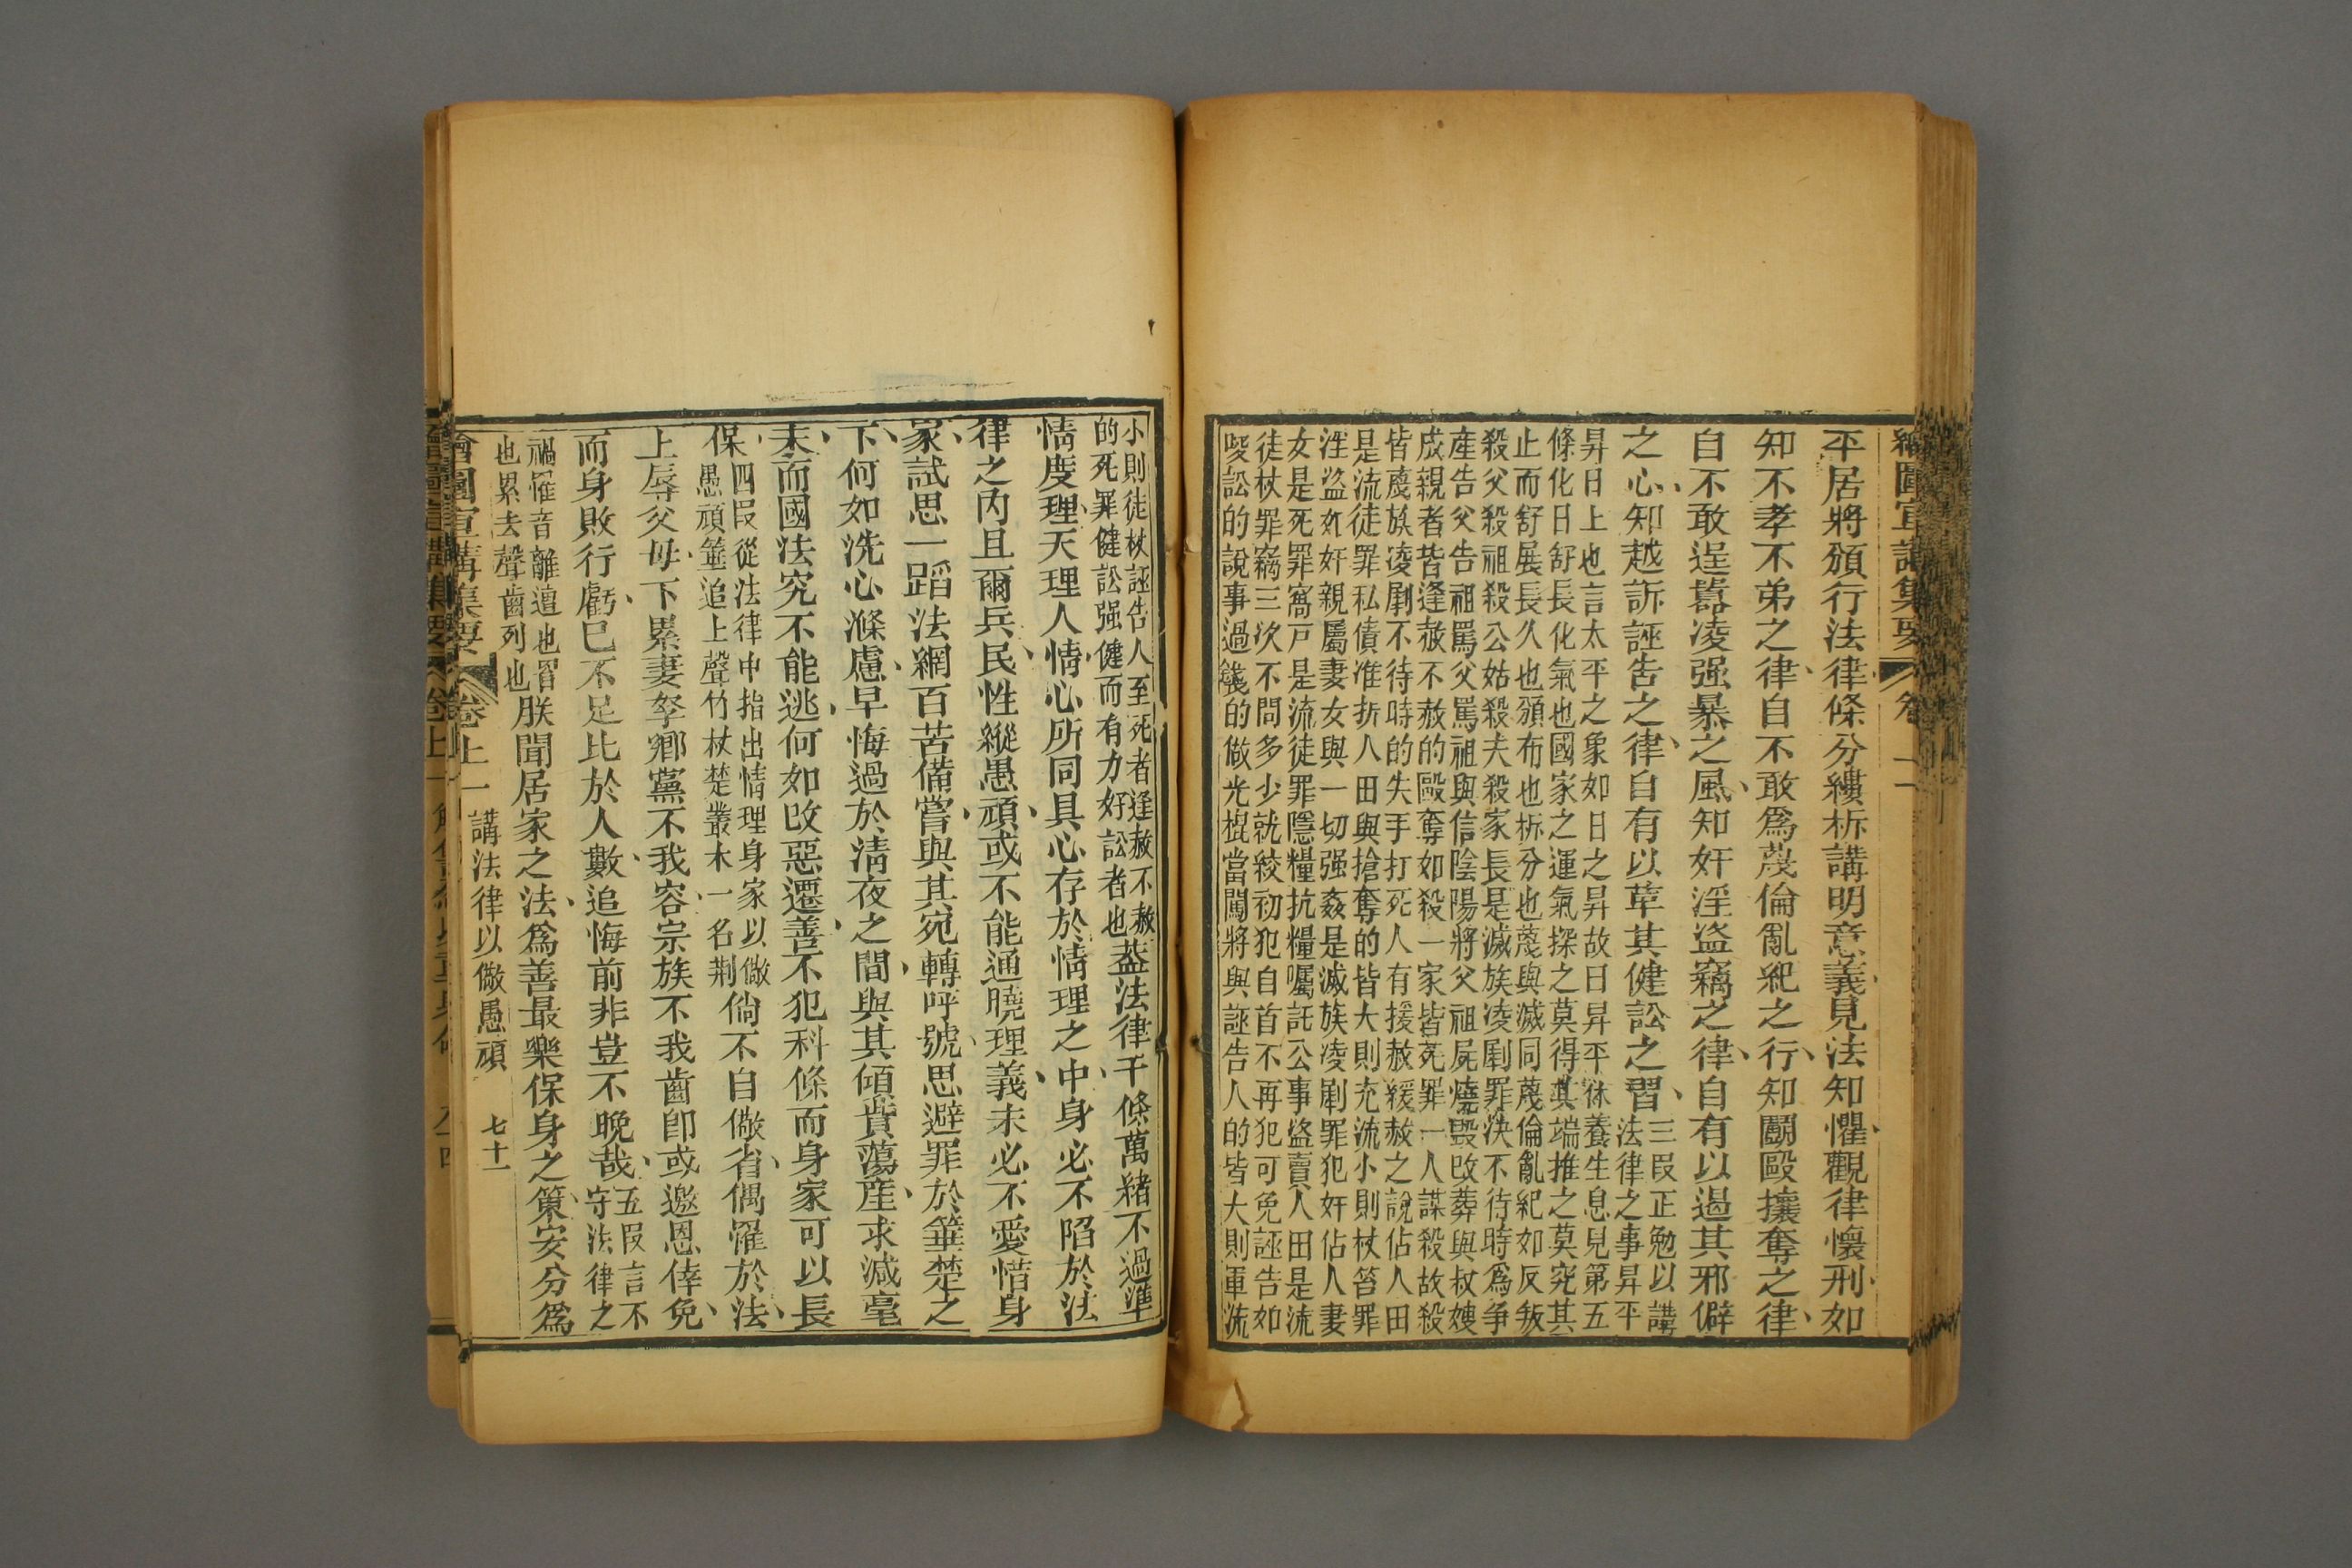 平居將頒行法律條分縷柝講明意義見法知懼觀律懷刑如
知不孝不弟之律自不敢爲蔑倫亂紀之行知鬭毆攘奪之律
自不敢逞囂凌强暴之風知奸淫盜竊之律自有以遏其邪僻
之心知越訴誣告之律自有以革其健訟之習
三叚正勉以講
法律之事昇平
昇日上也言太平之象如日之昇故曰昇平休養生息見第五
條化日舒長化氣也國家之運氣探之莫得其端推之莫究其
止而舒展長久也頒布也柝分也蔑與滅同蔑倫亂紀如反叛
殺父殺祖殺公姑殺夫殺家長是滅族凌剮罪決不待時爲爭
產告父告祖罵父罵祖與信陰陽將父祖屍燒毁改葬與叔嫂
成親者皆逢赦不赦的毆奪如殺一家皆死罪一人謀殺故殺
皆蔑族凌剮不待時的失手打死人有援赦緩赦之說佔人田
是流徒罪私債准折人田與搶奪的皆大則充流小則杖笞罪
淫盜如奸親屬妻女與一切强姦是滅族凌剮罪犯奸佔人妻
女是死罪窩戸是流徒罪隱糧抗糧囑託公事盜賣人田是流
徒杖罪竊三次不問多少就絞初犯自首不再犯可免誣告如
唆訟的說事過錢的做光棍當闖將與誣告人的皆大則軍流
小則徒杖誣告人至死者逢赦不赦
的死罪健訟强健而有力好訟者也
葢法律千條萬緒不過準
情度理天理人情心所同具心存於情理之中身必不陷於法
律之内且爾兵民性縱愚頑或不能通曉理義未必不愛惜身
家試思一蹈法網百苦備嘗與其宛轉呼號思避罪於箠楚之
下何如洗心滌慮早悔過於淸夜之間與其傾貲蕩産求減毫
末而國法究不能逃何如改惡遷善不犯科條而身家可以長
保
四叚從法律中指出情理身家以儆
愚頑箠追上聲竹杖楚叢木一名荆
倘不自儆省偶罹於法
上辱父母下累妻孥鄉黨不我容宗族不我齒卽或邀恩倖免
而身敗行虧巳不足比於人數追悔前非豈不晚哉
五叚言不
守法律之
禍罹音離遭也罥
也累去聲齒列也
朕聞居家之法爲善最樂保身之策安分爲
繪圖宣講集要 卷上一 講法律以儆愚頑 七十一